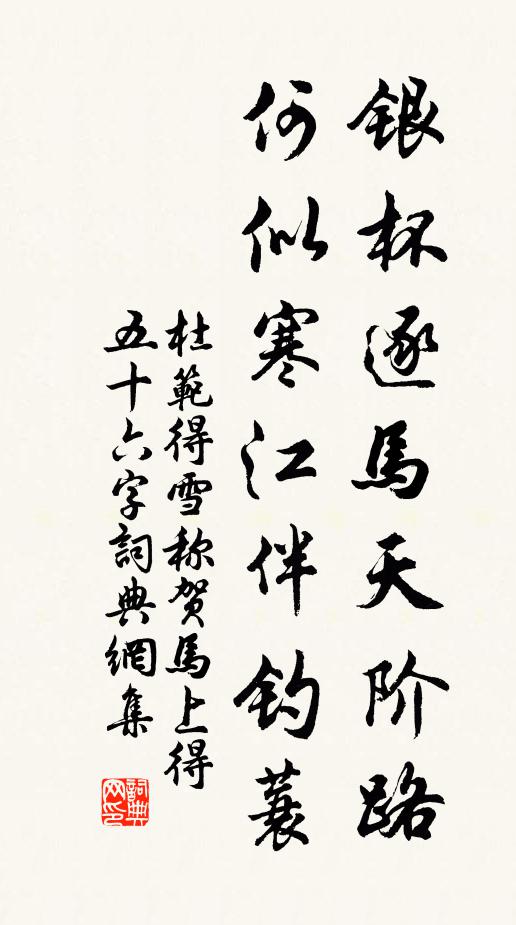 银杯逐馬天阶路
何似寒江伴钓蓑
杜範得雪称贺馬上得
五十六字詞典網集
詞典网印